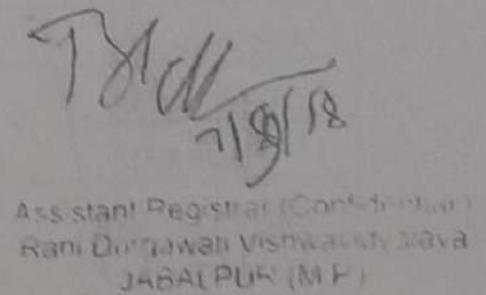 7/8/18
Assistant Registrar (Confidential)
Rani Durgawati Vishwavidyalaya
JABALPUR (M.P.)